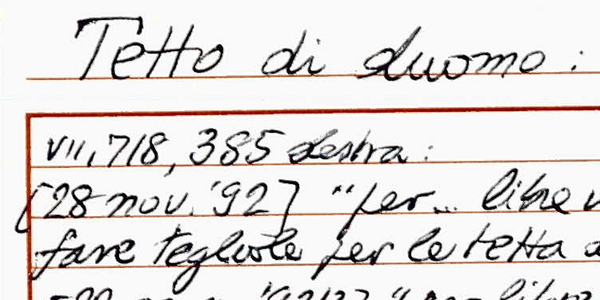 Tetto di duomo:
VII, 718, 385 destra:
[28 nov. '92] "per... libre
fare tegliole per le tetta